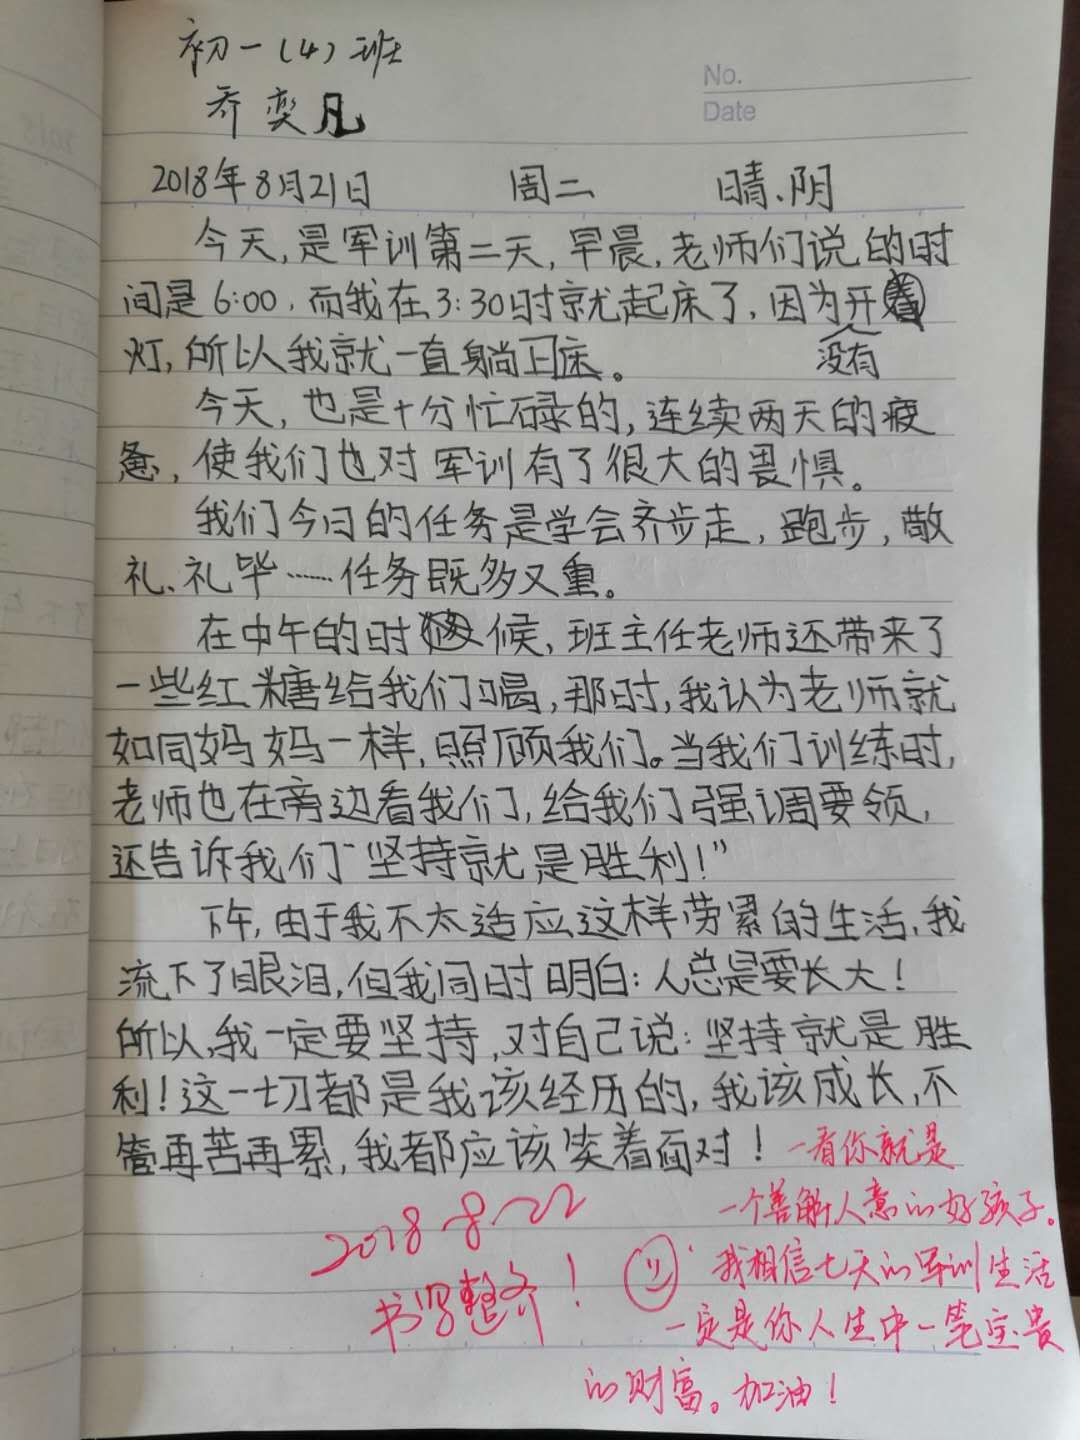 初一(4)班
乔奕凡
No.
Date
2018年8月21日 周二 晴、阴
今天,是军训第二天,早晨,老师们说的时
间是6:00,而我在3:30时就起床了,因为没有开
灯,所以我就一直躺卫床。
今天,也是十分忙碌的,连续两天的疲
惫,使我们也对军训有了很大的畏惧。
我们今日的任务是学会齐步走,跑步,敬
礼、礼毕……任务既多又重。
在中午的时候,班主任老师还带来了
一些红糖给我们喝,那时,我认为老师就
如同妈妈一样,照顾我们。当我们训练时,
老师也在旁边看我们,给我们强调要领,
还告诉我们“坚持就是胜利!”
下午,由于我不太适应这样劳累的生活,我
流下了眼泪,但我同时明白:人总是要长大!
所以,我一定要坚持,对自己说:坚持就是胜
利!这一切都是我该经历的,我该成长,不
管再苦再累,我都应该笑着面对!
一看你就是
一个善解人意的好孩子。
我相信七天的军训生活
一定是你人生中一笔宝贵
的财富。加油!
2018-8-22
书写整齐!